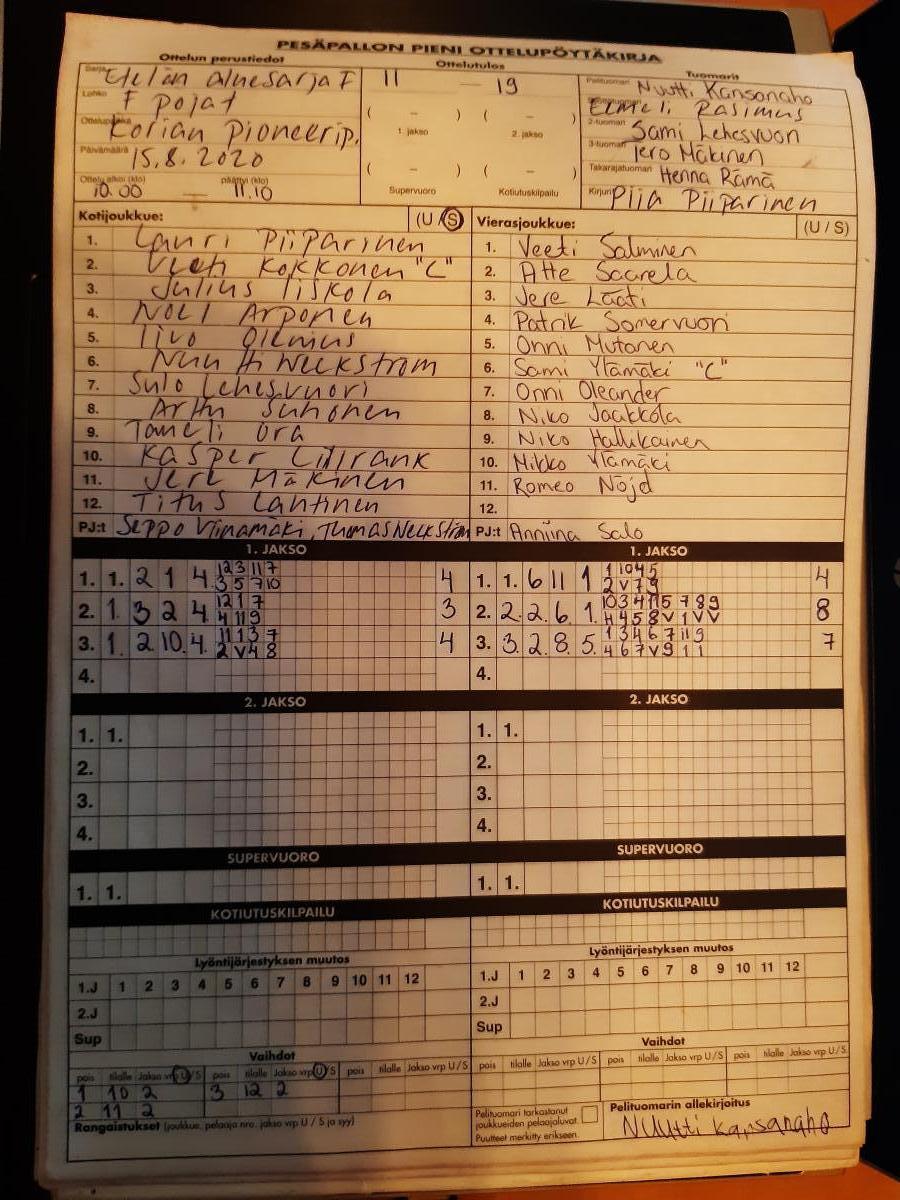 PESÄPALLON PIENI OTTELUPÖYTÄKIRJA
Ottelun perustiedot
Ottelutulos
Tuomarit
Sarja Etelän aluesarja F
Lohko F pojat
Ottelupaikka Korian Pioneerip.
Päivämäärä 15.8.2020
Ottelu alkoi (klo) 10.00 — päättyi (klo) 11.10
11 — 19
( – ) ( – )
1. jakso 2. jakso
( – ) ( – )
Supervuoro Kotiutuskilpailu
Pelituomari Nuutti Kansanaho
Elmeli Rasimus
2-tuomari Sami Lehesvuori
3-tuomari Tero Mäkinen
Takarajatuomari Henna Rämä
Kirjuri Piia Piiparinen
Kotijoukkue: (U / S)
1. Lauri Piiparinen
2. Veeti Kokkonen "C"
3. Julius Iiskola
4. Noel Arponen
5. Iivo
6. Nuutti Weckström
7. Sulo Lehesvuori
8. Arttu Suhonen
9. Taneli Ora
10. Kasper Lillrank
11. Jere Mäkinen
12. Titus Lantinen
PJ:t Seppo Viinamäki, Thomas Weckström
Vierasjoukkue: (U / S)
1. Veeti Salminen
2. Atte Saarela
3. Jere Lääti
4. Patrik Somervuori
5. Onni Mutanen
6. Sami Ylämäki "C"
7. Onni Oleander
8. Niko Jaakkola
9. Niko Hallikainen
10. Mikko Ylämäki
11. Romeo Nöjd
12.
PJ:t Anniina Salo
1. JAKSO
1. 1. 2 1 4 12 3 11 7 4
3 5 7 10
2. 1. 3 2 4 12 1 7 3
4 11 9
3. 1. 2. 10. 4. 11 1 3 7 4
2 V 4 8
4.
1. JAKSO
1. 1. 6 11 1 1 10 4 5 4
2 V 7 9
2. 2. 2. 6. 1. 10 3 4 11 5 7 8 9 8
4 4 5 8 V 1 V V
3. 3. 2. 8. 5. 1 3 4 6 7 11 9 7
4 6 7 V 9 1 1
4.
2. JAKSO
1. 1.
2.
3.
4.
2. JAKSO
1. 1.
2.
3.
4.
SUPERVUORO
1. 1.
SUPERVUORO
1. 1.
KOTIUTUSKILPAILU
KOTIUTUSKILPAILU
Lyöntijärjestyksen muutos
1.J 1 2 3 4 5 6 7 8 9 10 11 12
2.J
Sup
Lyöntijärjestyksen muutos
1.J 1 2 3 4 5 6 7 8 9 10 11 12
2.J
Sup
Vaihdot
pois tilalle Jakso vrp U/S pois tilalle Jakso vrp U/S pois tilalle Jakso vrp U/S
1 10 2 3 12 2
2 11 2
Rangaistukset (joukkue, pelaaja nro, jakso vrp U / S ja syy)
Vaihdot
pois tilalle Jakso vrp U/S pois tilalle Jakso vrp U/S pois tilalle Jakso vrp U/S
Pelituomari tarkastanut
joukkueiden pelaajaluvat.
Puutteet merkitty erikseen.
Pelituomarin allekirjoitus
Nuutti Kansanaho